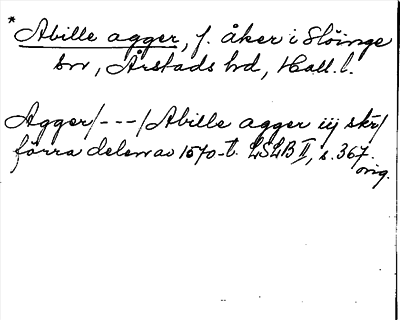 *Abille agger, f. åker i Slöinge
sn, Årstads hd, Hall. l.
Agger/---/Abille agger iij skr/
förra delen av 1570-t. LSLB II, s. 367.
orig.